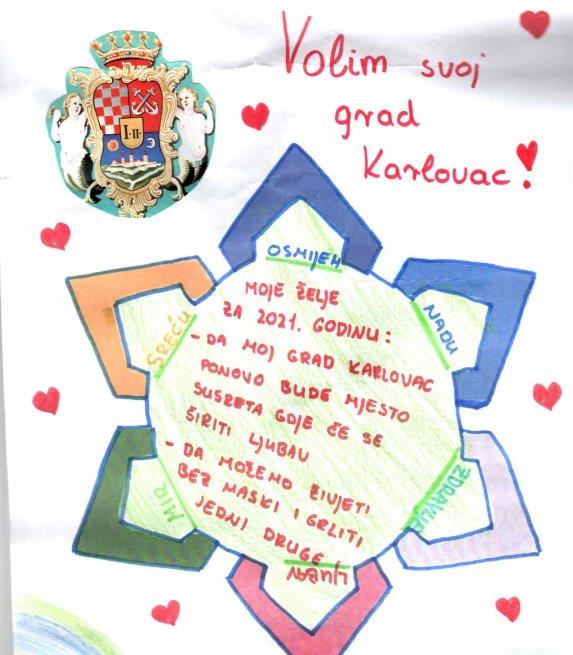 Volim svoj
grad
Karlovac!
I-II
OSMIJEH
NADU
ZDRAVLJE
LJUBAV
MIR
SREĆU
MOJE ŽELJE
ZA 2021. GODINU:
- DA MOJ GRAD KARLOVAC
PONOVO BUDE MJESTO
SUSRETA GDJE ČE SE
ŠIRITI LJUBAV
- DA MOŽEMO ŽIVJETI
BEZ MASKI I GRLITI
JEDNI DRUGE